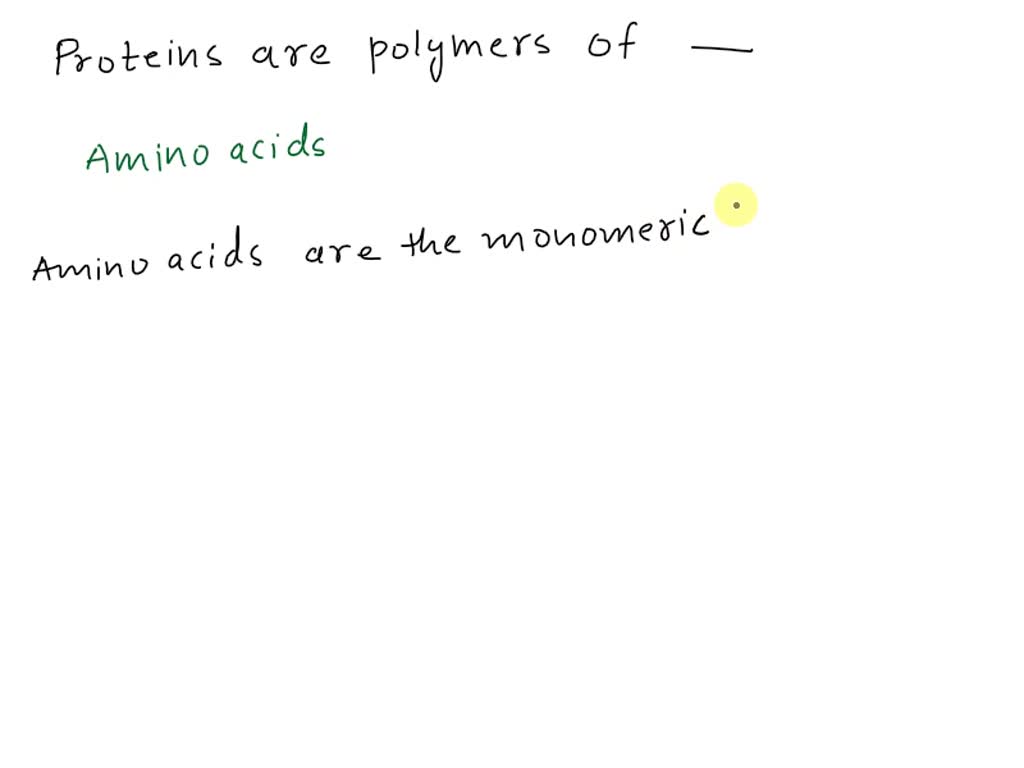 Proteins are polymers of —
Amino acids
Amino acids are the monomeric